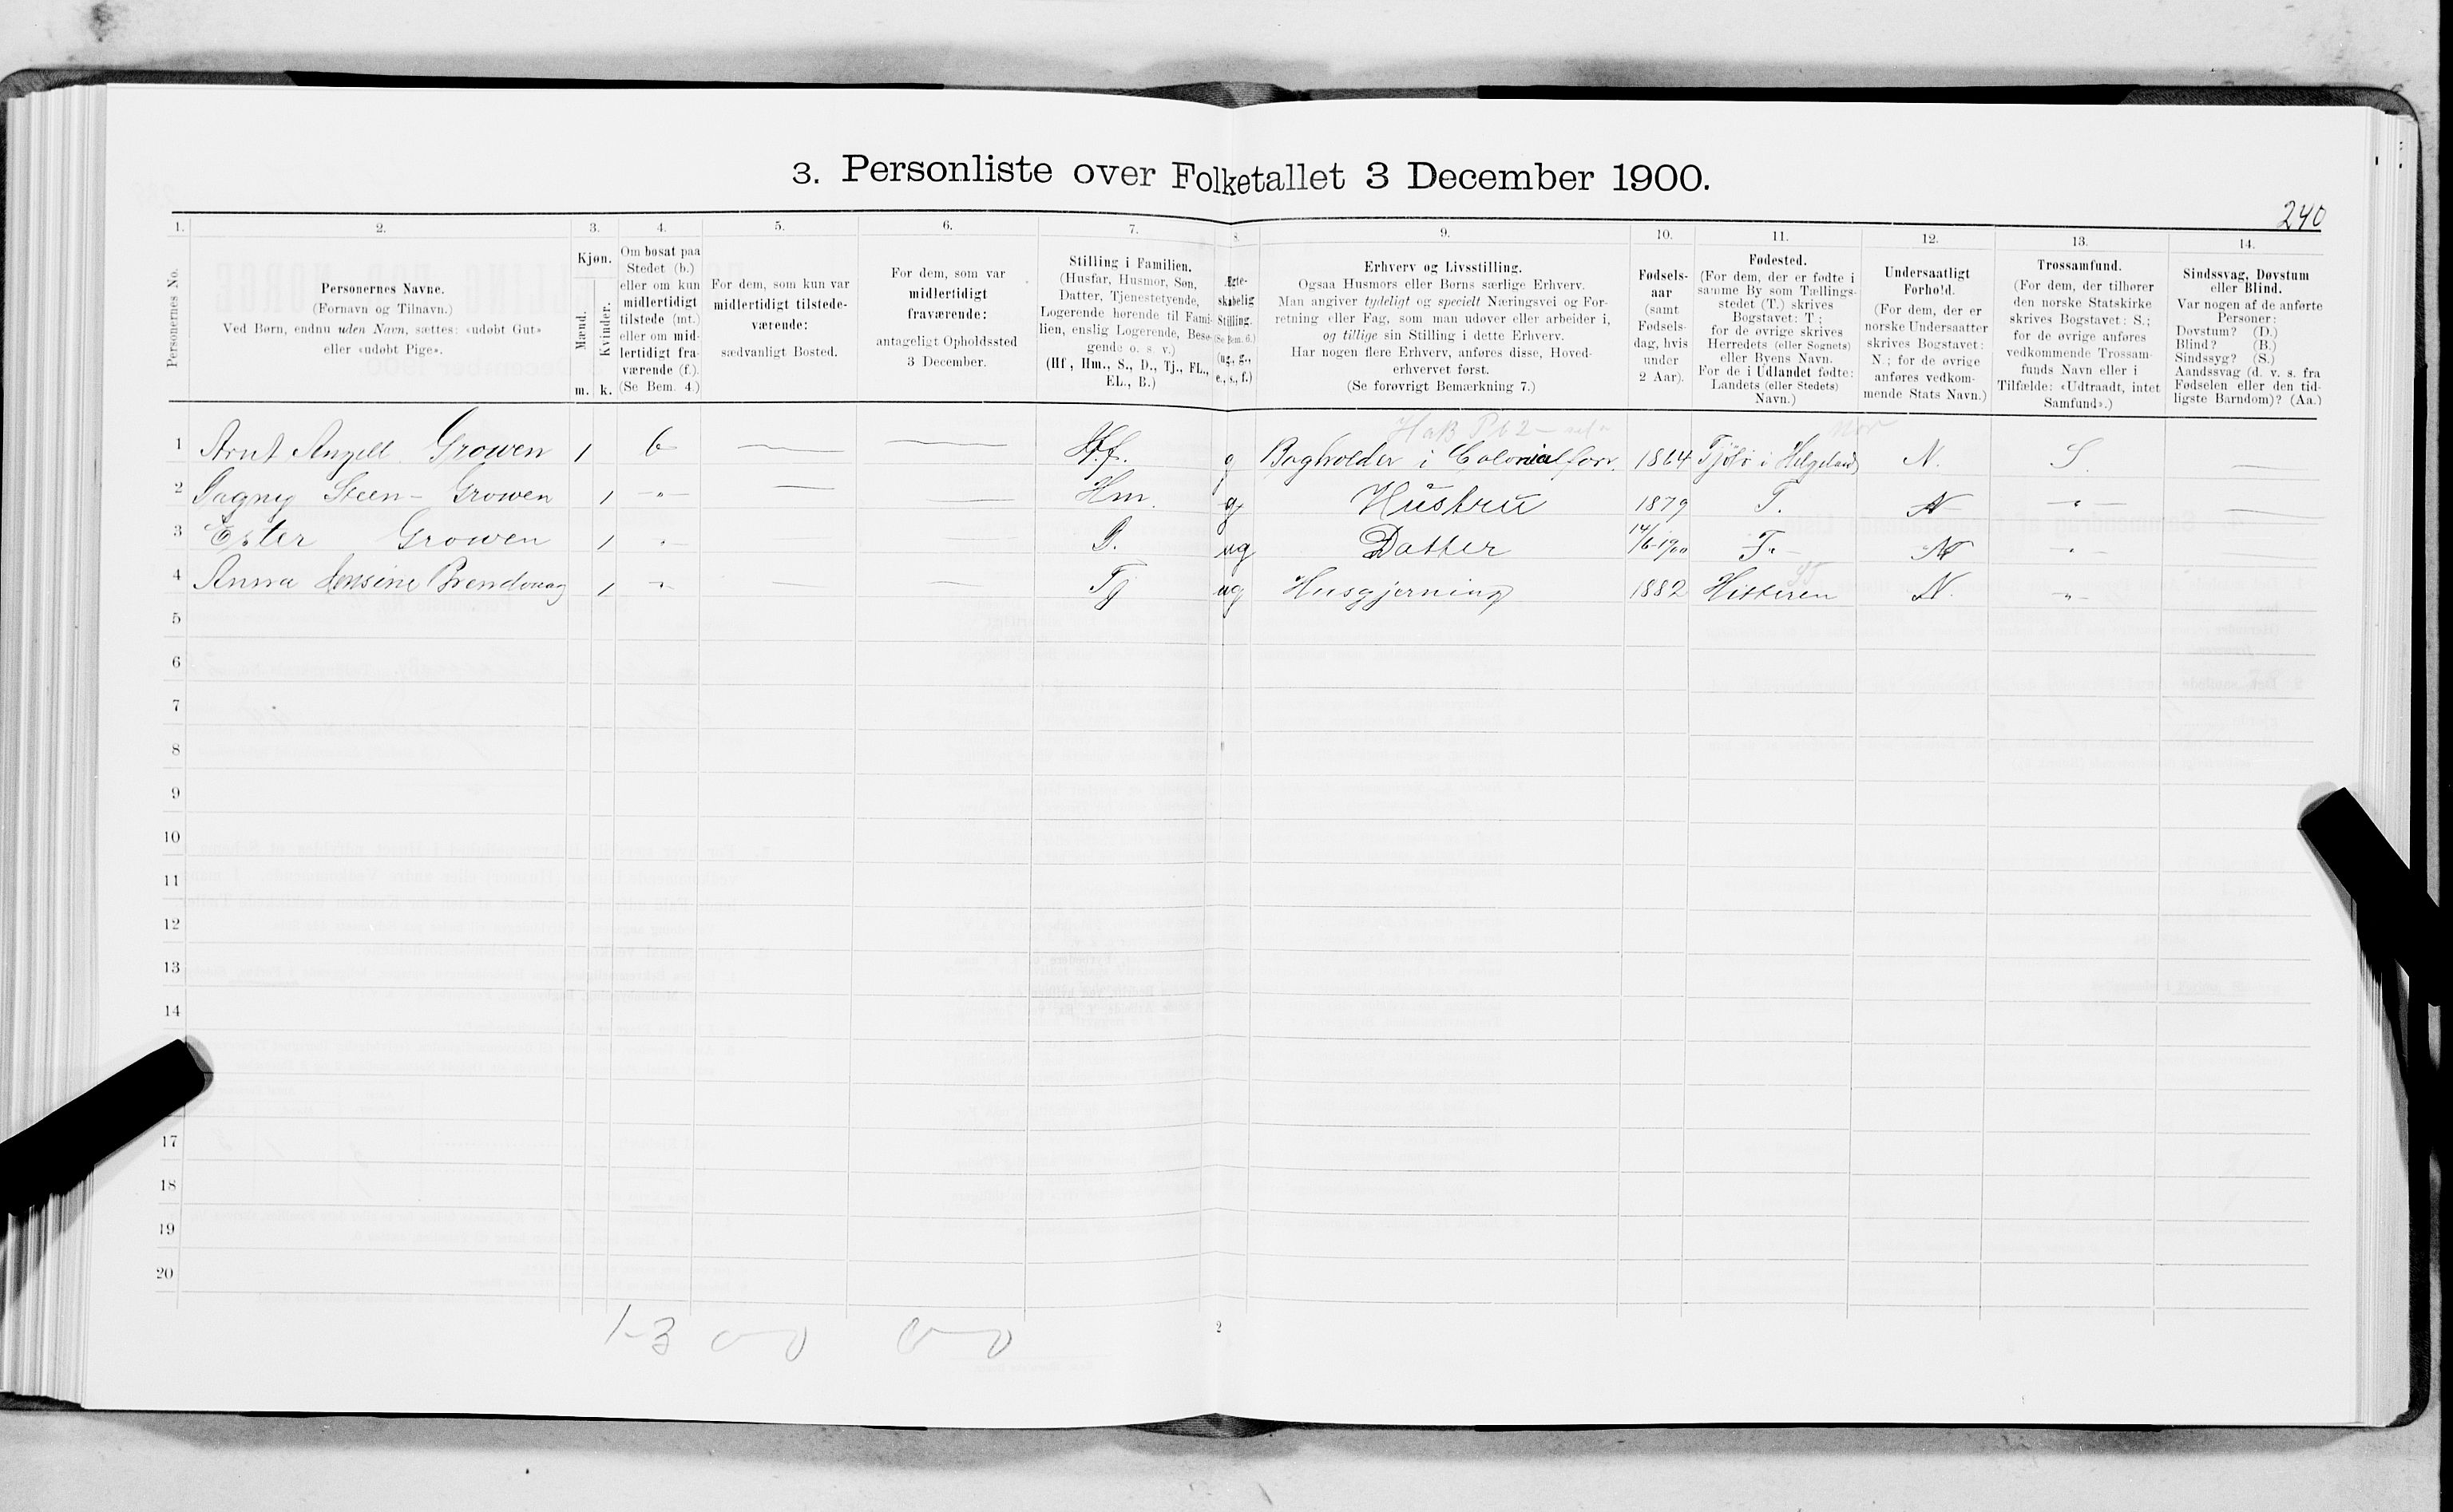 3. Personliste over Folketallet 3 December 1900.
240
1. 2. 3. 4. 5. 6. 7. 8. 9. 10. 11. 12. 13. 14.
Personernes No.
Personernes Navne.
(Fornavn og Tilnavn.)
Ved Børn, endnu uden Navn, sættes: «udøbt Gut»
eller «udøbt Pige».
Kjøn.
Mænd.
Kvinder.
m. k.
Om bosat paa
Stedet (b.)
eller om kun
midlertidigt
tilstede (mt.)
eller om mid-
lertidigt fra-
værende (f.).
(Se Bem. 4.)
For dem, som kun var
midlertidigt tilstede-
værende:
sædvanligt Bosted.
For dem, som var
midlertidigt
fraværende:
antageligt Opholdssted
3 December.
Stilling i Familien.
(Husfar, Husmor, Søn,
Datter, Tjenestetyende,
Logerende hørende til Fami-
lien, enslig Logerende, Besø-
gende o. s. v.)
(Hf., Hm., S., D., Tj., FL.,
EL., B.)
Ægte-
skabelig
Stilling.
(Se Bem. 6.)
(ug., g.,
e., s., f.)
Erhverv og Livsstilling.
Ogsaa Husmors eller Børns særlige Erhverv.
Man angiver tydeligt og specielt Næringsvei og For-
retning eller Fag, som man udover eller arbeider i,
og tillige sin Stilling i dette Erhverv.
Har nogen flere Erhverv, anføres disse, Hoved-
erhvervet først.
(Se forøvrigt Bemærkning 7.)
Fødsels-
aar
(samt
Fødsels-
dag, hvis
under
2 Aar).
Fødested.
(For dem, der er fødte i
samme By som Tællings-
stedet (T.) skrives
Bogstavet: T;
for de øvrige skrives
Herredets (eller Sognets)
eller Byens Navn.
For de i Udlandet fødte:
Landets (eller Stedets)
Navn.)
Undersaatligt
Forhold.
(For dem, der er
norske Undersaatter
skrives Bogstavet:
N.; for de øvrige
anføres vedkom-
mende Stats Navn.)
Trossamfund.
(For dem, der tilhører
den norske Statskirke
skrives Bogstavet: S.;
for de øvrige anføres
vedkommende Trossam-
funds Navn eller i
Tilfælde: «Udtraadt, intet
Samfund».)
Sindssvag, Døvstum
eller Blind.
Var nogen af de anførte
Personer:
Døvstum? (D.)
Blind? (B.)
Sindssyg? (S.)
Aandssvag (d. v. s. fra
Fødselen eller den tid-
ligste Barndom)? (Aa.)
1 Arnt Angell Growen 1 b — — Hf. g Bogholder i Colonialforr. 1864 Tjøtø i Helgeland N. S. —
2 Dagny Steen- Growen 1 -"- — — Hm. g Hustru 1879 T. N -"- —
3 Ester Growen 1 " — D. ug Datter 14/6-1900 T. N -"- —
4 Anna Jensine Brendvaag 1 -"- — — Tj ug Husgjerning 1882 Hitteren N. -"- —
5
6
7
8
9
10
11
12
13
14
17
18
19
20
1-3 0-0 0-0
2